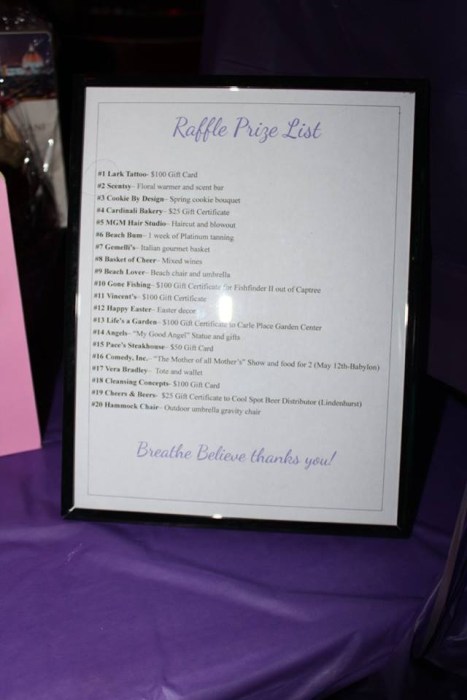 Raffle Prize List
#1 Lark Tattoo- $100 Gift Card
#2 Scentsy- Floral warmer and scent bar
#3 Cookie By Design- Spring cookie bouquet
#4 Cardinali Bakery- $25 Gift Certificate
#5 MGM Hair Studio- Haircut and blowout
#6 Beach Bum- 1 week of Platinum tanning
#7 Gemelli's- Italian gourmet basket
#8 Basket of Cheer- Mixed wines
#9 Beach Lover- Beach chair and umbrella
#10 Gone Fishing- $100 Gift Certificate for Fishfinder II out of Captree
#11 Vincent's- $100 Gift Certificate
#12 Happy Easter- Easter decor
#13 Life's a Garden- $100 Gift Certificate to Carle Place Garden Center
#14 Angels- "My Good Angel" Statue and gifts
#15 Pace's Steakhouse- $50 Gift Card
#16 Comedy, Inc.- "The Mother of all Mother's" Show and food for 2 (May 12th-Babylon)
#17 Vera Bradley- Tote and wallet
#18 Cleansing Concepts- $100 Gift Card
#19 Cheers & Beers- $25 Gift Certificate to Cool Spot Beer Distributor (Lindenhurst)
#20 Hammock Chair- Outdoor umbrella gravity chair
Breathe Believe thanks you!